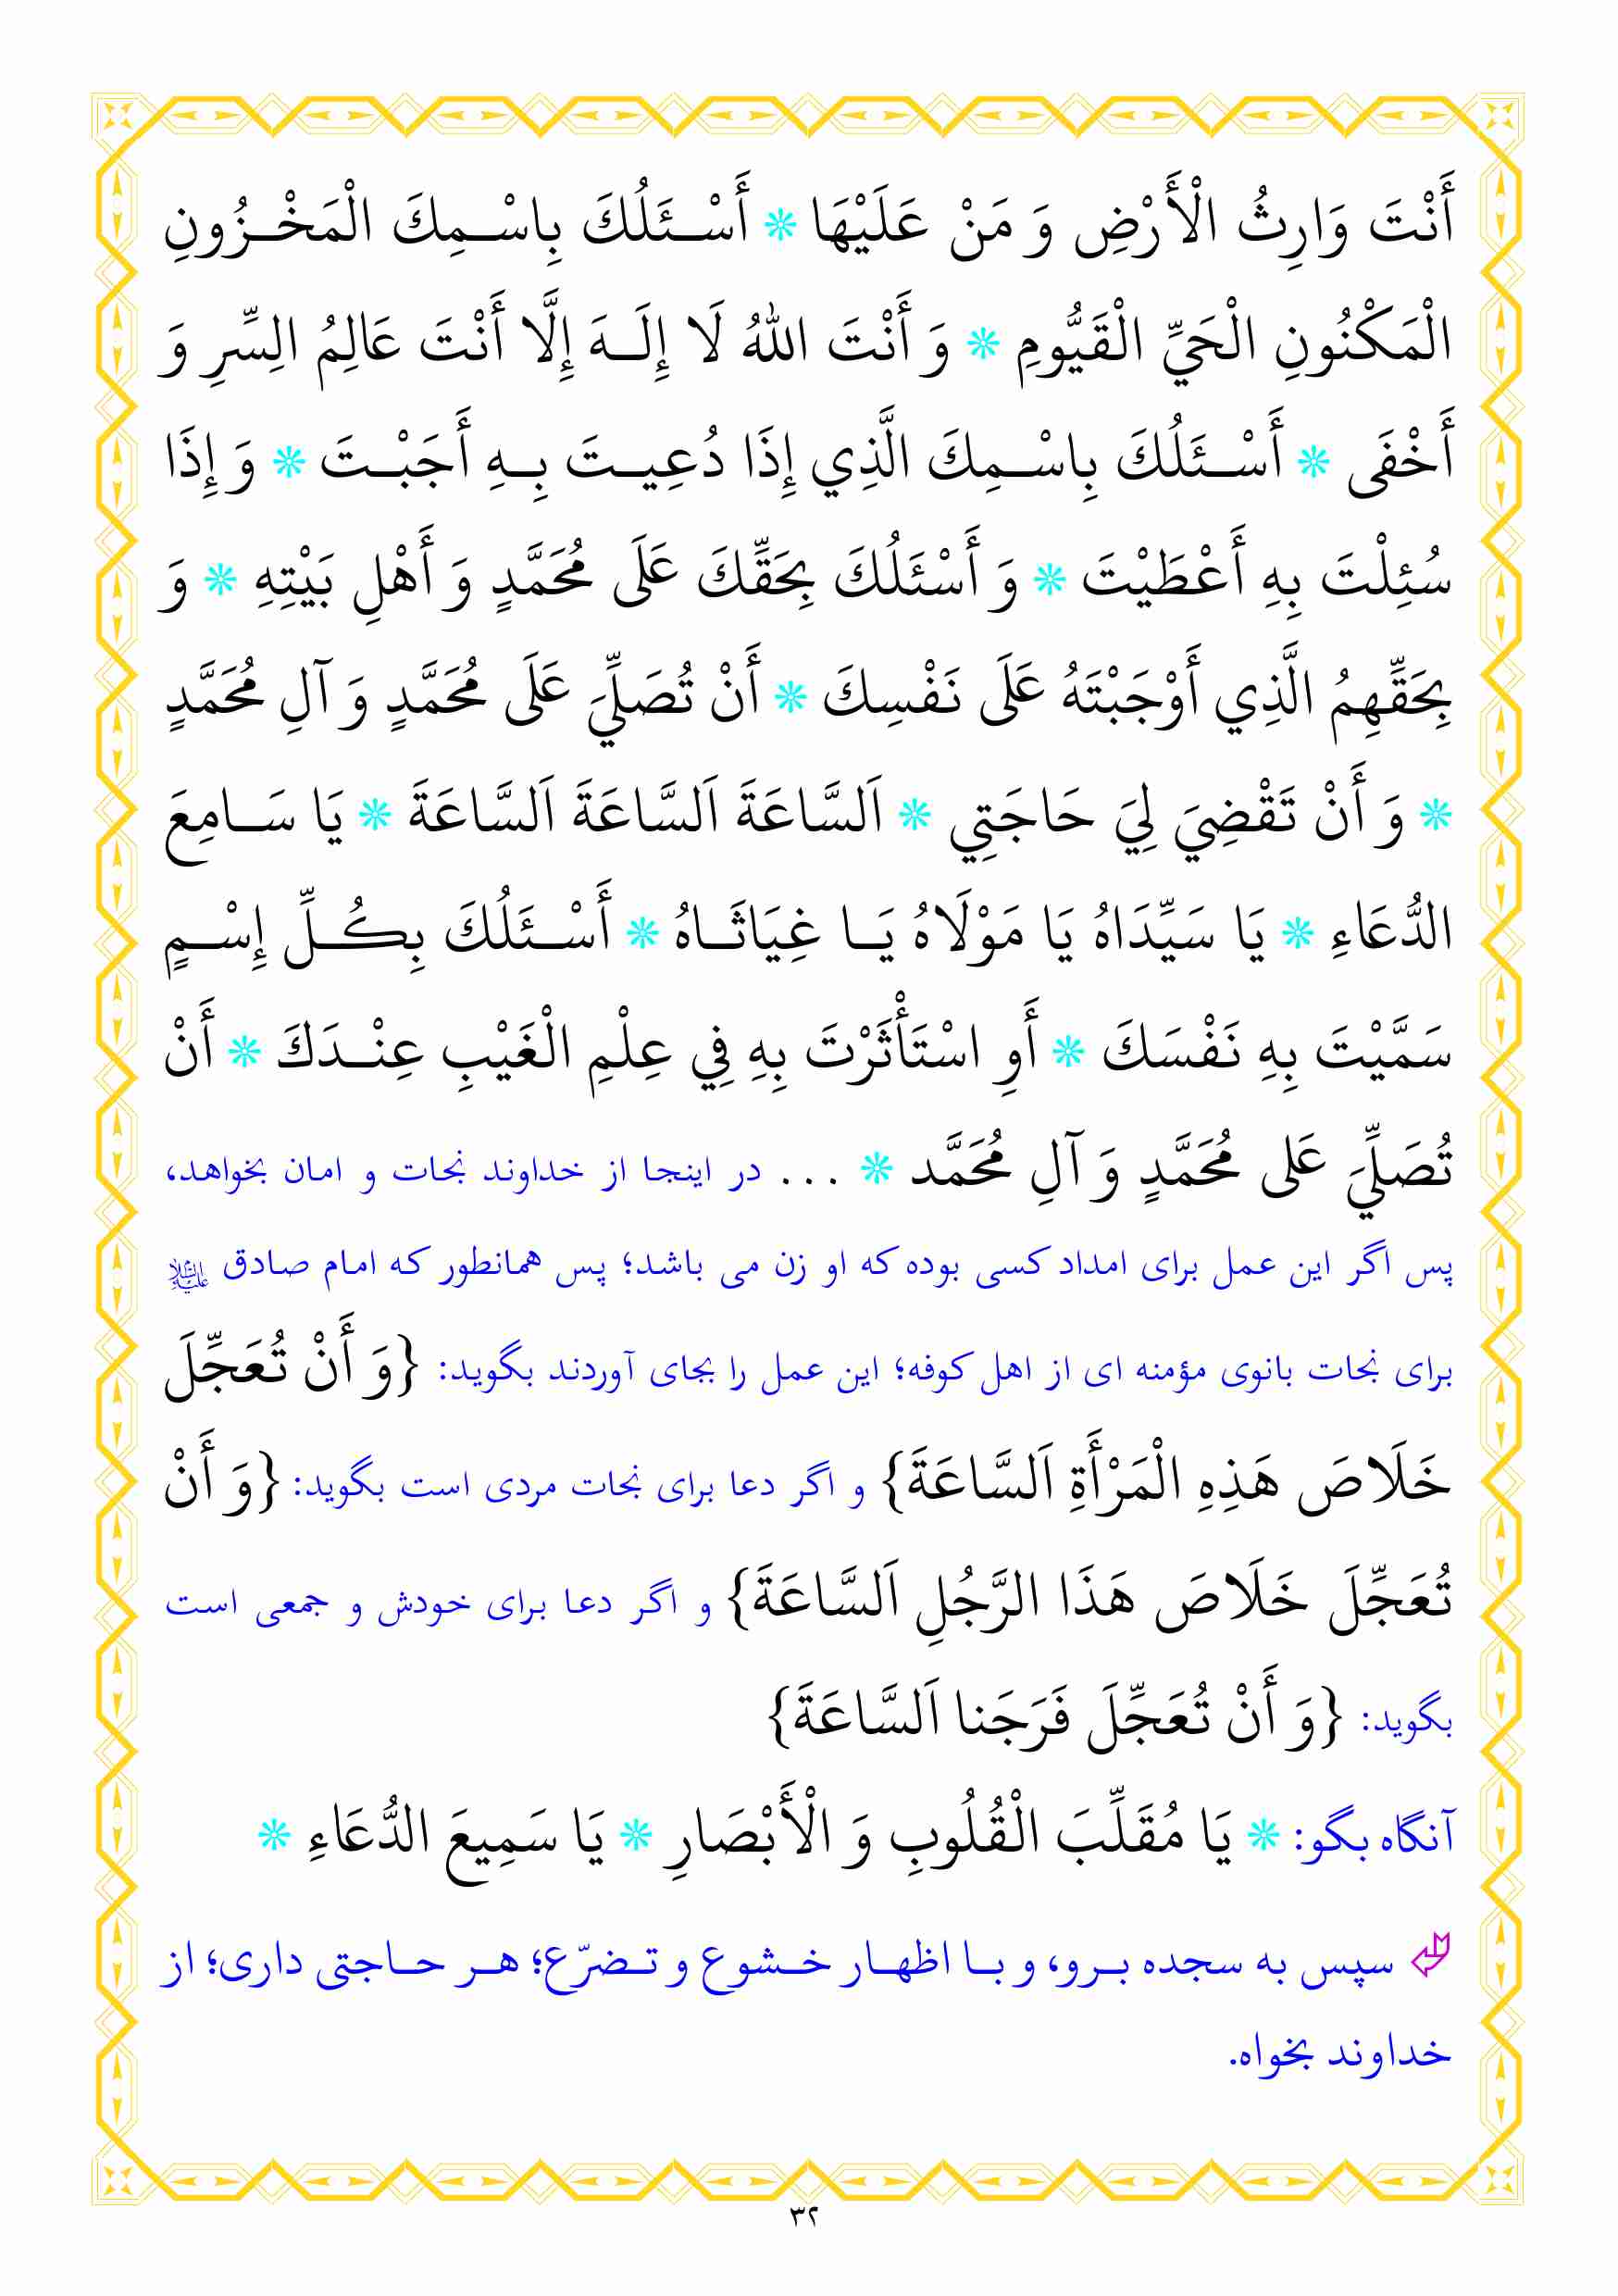 أَنْتَ وَارِثُ الْأَرْضِ وَ مَنْ عَلَيْهَا * أَسْـئَلُكَ بِاسْـمِكَ الْمَخْـزُونِ
الْمَكْنُونِ الْحَيِّ الْقَيُّومِ * وَ أَنْتَ اللهُ لَا إِلَـهَ إِلَّا أَنْتَ عَالِمُ السِّرِ وَ
أَخْفَى * أَسْـئَلُكَ بِاسْـمِكَ الَّذِي إِذَا دُعِيـتَ بِـهِ أَجَبْـتَ * وَ إِذَا
سُئِلْتَ بِهِ أَعْطَيْتَ * وَ أَسْئَلُكَ بِحَقِّكَ عَلَى مُحَمَّدٍ وَ أَهْلِ بَيْتِهِ * وَ
بِحَقِّهِمُ الَّذِي أَوْجَبْتَهُ عَلَى نَفْسِكَ * أَنْ تُصَلِّيَ عَلَى مُحَمَّدٍ وَ آلِ مُحَمَّدٍ
* وَ أَنْ تَقْضِيَ لِيَ حَاجَتِي * اَلسَّاعَةَ اَلسَّاعَةَ اَلسَّاعَةَ * يَا سَـامِعَ
الدُّعَاءِ * يَا سَيِّدَاهُ يَا مَوْلَاهُ يَـا غِيَاثَـاهُ * أَسْـئَلُكَ بِكُـلِّ إِسْـمٍ
سَمَّيْتَ بِهِ نَفْسَكَ * أَوِ اسْتَأْثَرْتَ بِهِ فِي عِلْمِ الْغَيْبِ عِنْـدَكَ * أَنْ
تُصَلِّيَ عَلى مُحَمَّدٍ وَ آلِ مُحَمَّد * ... در اینجا از خداوند نجات و امان بخواهد،
پس اگر این عمل برای امداد کسی بوده که او زن می باشد؛ پس همانطور که امام صادق علیه‌السلام
برای نجات بانوی مؤمنه ای از اهل کوفه؛ این عمل را بجای آوردند بگوید: {وَ أَنْ تُعَجِّلَ
خَلَاصَ هَذِهِ الْمَرْأَةِ اَلسَّاعَةَ} و اگر دعا برای نجات مردی است بگوید: {وَ أَنْ
تُعَجِّلَ خَلَاصَ هَذَا الرَّجُلِ اَلسَّاعَةَ} و اگر دعا برای خودش و جمعی است
بگوید: {وَ أَنْ تُعَجِّلَ فَرَجَنا اَلسَّاعَةَ}
آنگاه بگو: * يَا مُقَلِّبَ الْقُلُوبِ وَ الْأَبْصَارِ * يَا سَمِيعَ الدُّعَاءِ *
سپس به سجده بـرو، و بـا اظهـار خـشوع و تـضرّع؛ هـر حـاجتی داری؛ از
خداوند بخواه.
۳۲